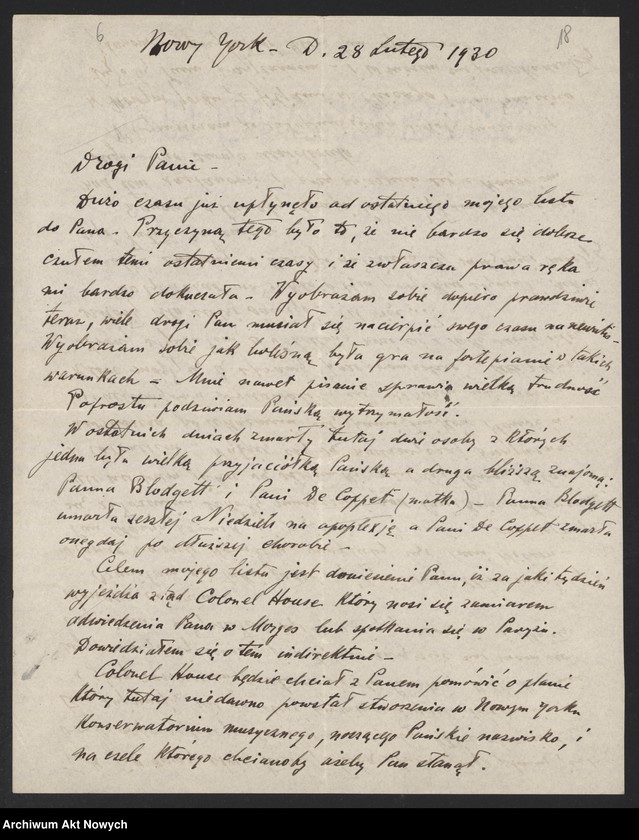 6
18
Nowy York – D. 28 Lutego 1930
Drogi Panie –
Dużo czasu już upłynęło od ostatniego mojego listu
do Pana – Przyczyną tego było to, że nie bardzo się dobrze
czułem temi ostatniemi czasy i że zwłaszcza prawa ręka
mi bardzo dokuczała – Wyobrażam sobie dopiero prawdziwie
teraz, wiele drogi Pan musiał się nacierpieć swego czasu na neuritis –
Wyobrażam sobie jak bolesną była gra na fortepianie w takich
warunkach – Mnie nawet pisanie sprawia wielką trudność
Poprostu podziwiam Pańską wytrzymałość.
W ostatnich dniach zmarły tutaj dwie osoby z których
jedna była wielką przyjaciółką Pańską a druga bliższą znajomą:
Panna Blodgett i Pani De Coppet (matka) – Panna Blodgett
umarła zeszłej Niedzieli na apopleksję a Pani De Coppet zmarła
onegdaj po dłuższej chorobie –
Celem mojego listu jest doniesienie Panu, iż za jaki tydzień
wyjeżdża ztąd Colonel House który nosi się zamiarem
odwiedzenia Pana w Morges lub spotkania się w Paryżu.
Dowiedziałem się o tem indirektnie –
Colonel House będzie chciał z Panem pomówić o planie
który tutaj niedawno powstał stworzenia w Nowym Yorku
Konserwatorium muzycznego, noszącego Pańskie nazwisko, i
na czele którego chcianoby ażeby Pan stanął.
Archiwum Akt Nowych